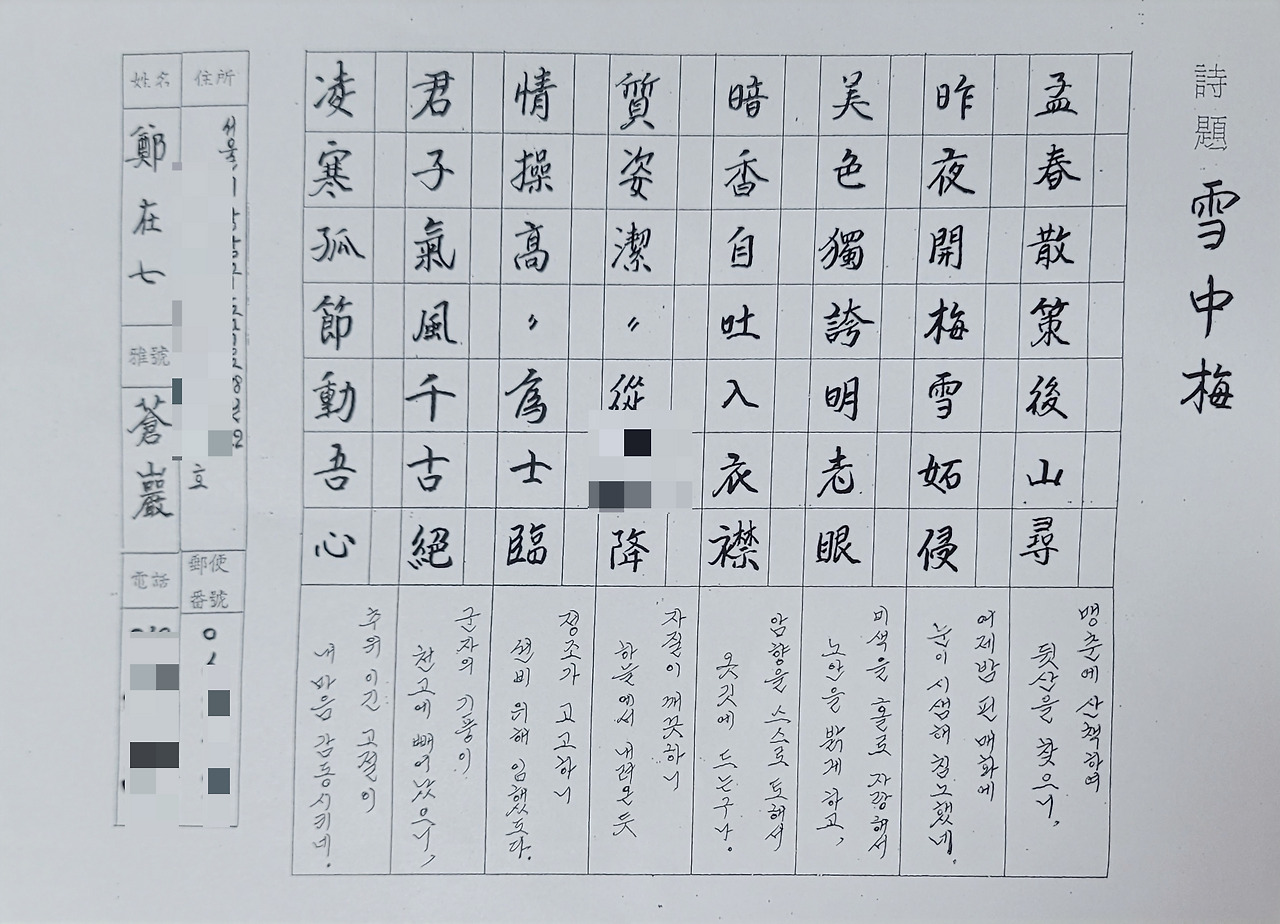 詩題 雪中梅
孟春散策後山尋
昨夜開梅雪妬侵
美色獨誇明老眼
暗香自吐入衣襟
質姿潔〃從 降
情操高〃爲士臨
君子氣風千古絕
凌寒孤節動吾心
맹춘에 산책하여
뒷산을 찾으니,
어제밤 핀 매화에
눈이 시샘해 침노했네.
미색을 홀로 자랑해서
노안을 밝게 하고,
암향을 스스로 토해서
옷깃에 드는구나.
자질이 깨끗하니
하늘에서 내려온 듯
정조가 고고하니
선비 위해 임했도다.
군자의 기풍이
천고에 빼어났으니,
추위 이긴 고절이
내 마음 감동시키네.
住所
서울시
호
郵便
番號
姓名
鄭在七
雅號
蒼巖
電話